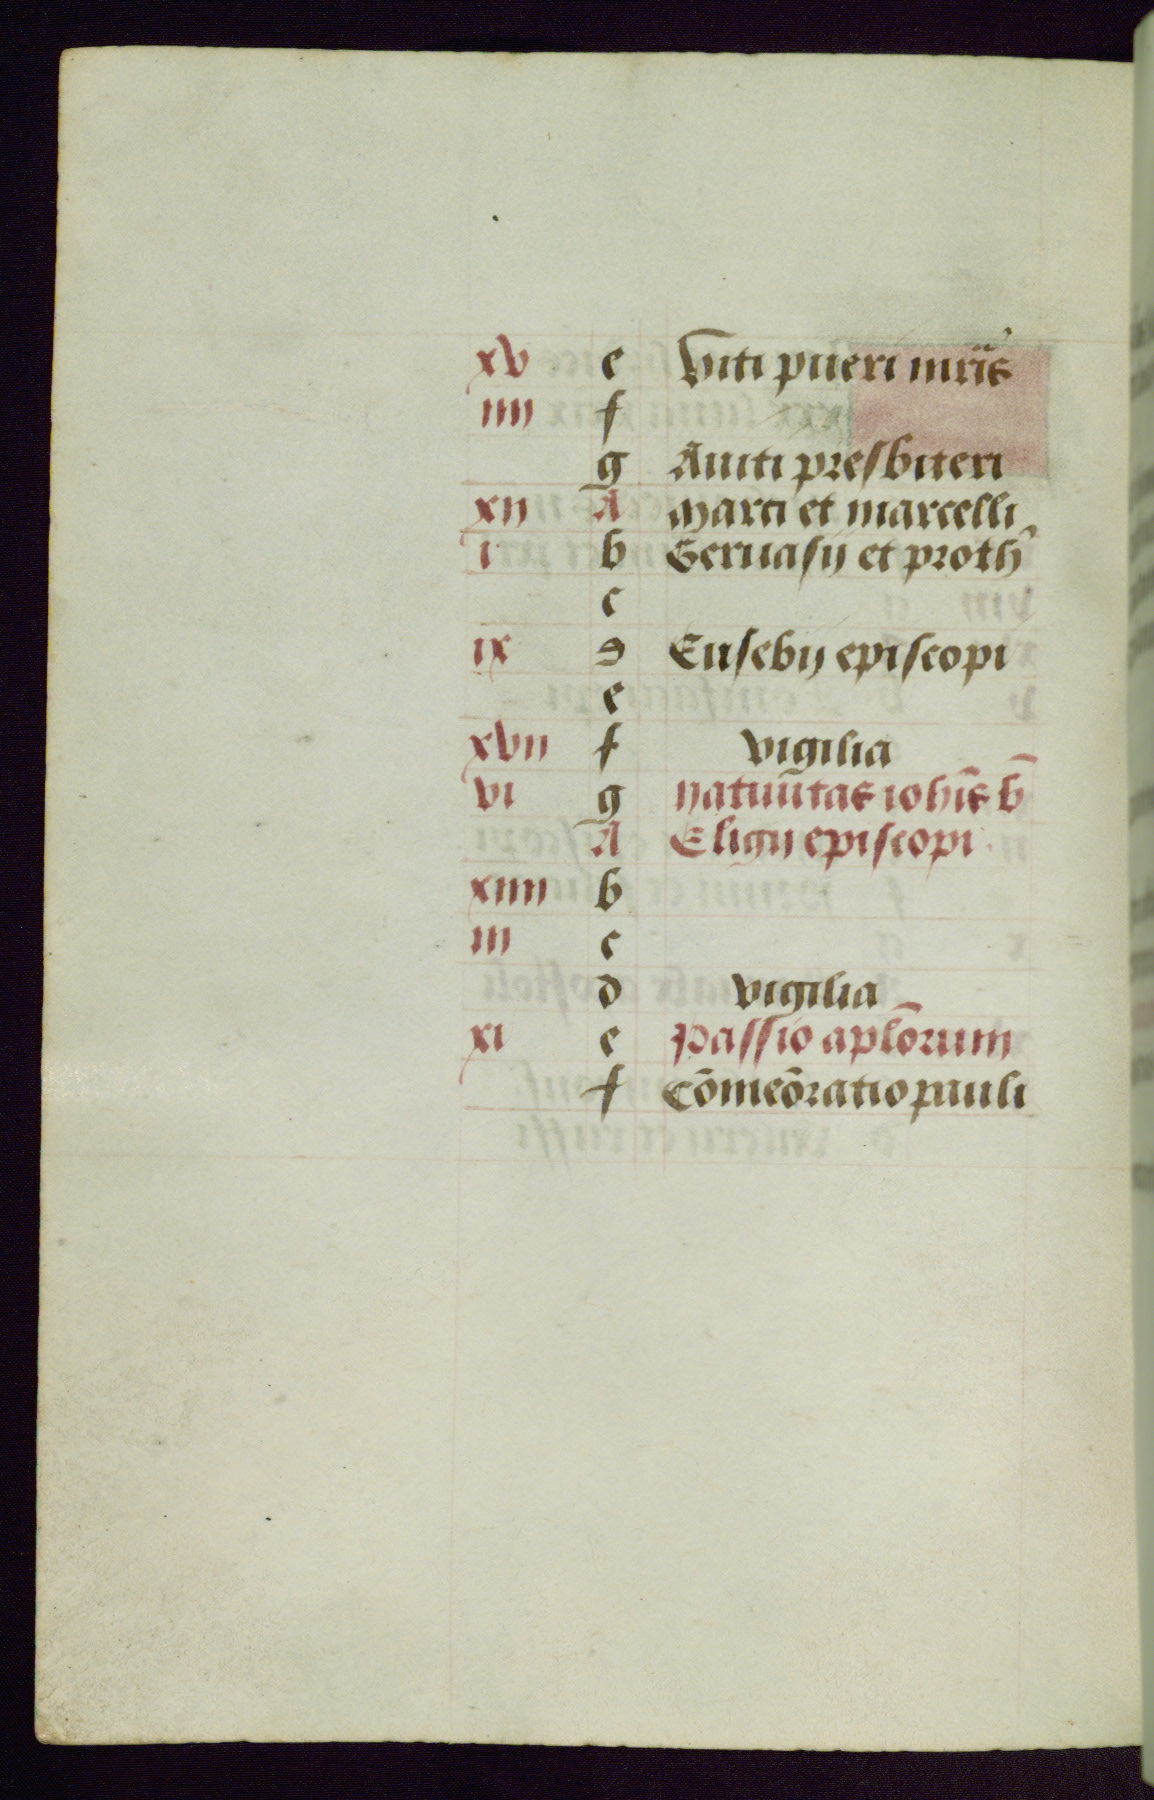 xv e Viti pueri mr̄is
iiii f
g Auiti presbiteri
xii A Marci et marcelli
i b Geruasij et proth
c
ix d Eusebij episcopi
e
xvii f vigilia
vi g Natiuītas iohīs b̄
A Eligij episcopi
xiiii b
iii c
d vigilia
xi e Passio aplōrum
f Cōmeōratio pauli